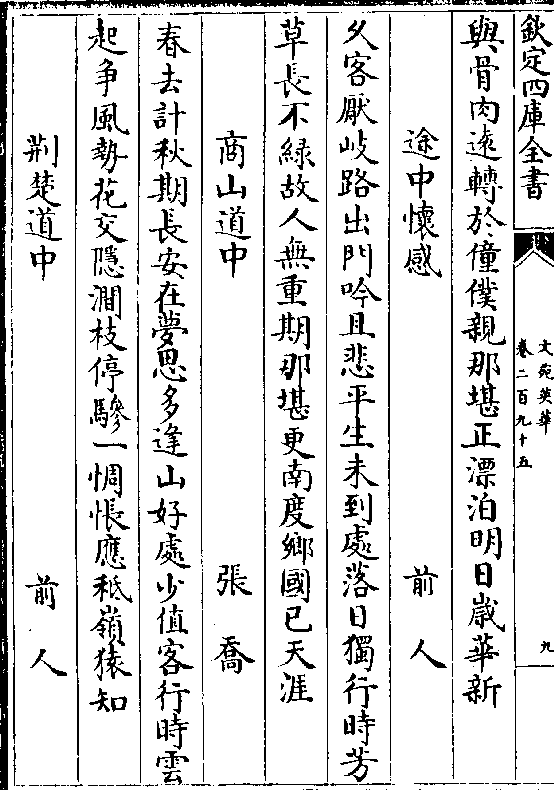 欽定四庫全書
文苑英華
卷二百九十五
九
與骨肉逺轉於僮僕親那堪正漂泊明日嵗華新
途中懷感
前人
久客厭岐路出門吟且悲平生未到處落日獨行時芳
草長不緑故人無重期那堪更南度鄉國已天涯
商山道中
張喬
春去計秋期長安在夢思多逢山好處少值客行時雲
起争風勢花交隱澗枝停驂一惆悵應秪嶺猿知
荆楚道中
前人